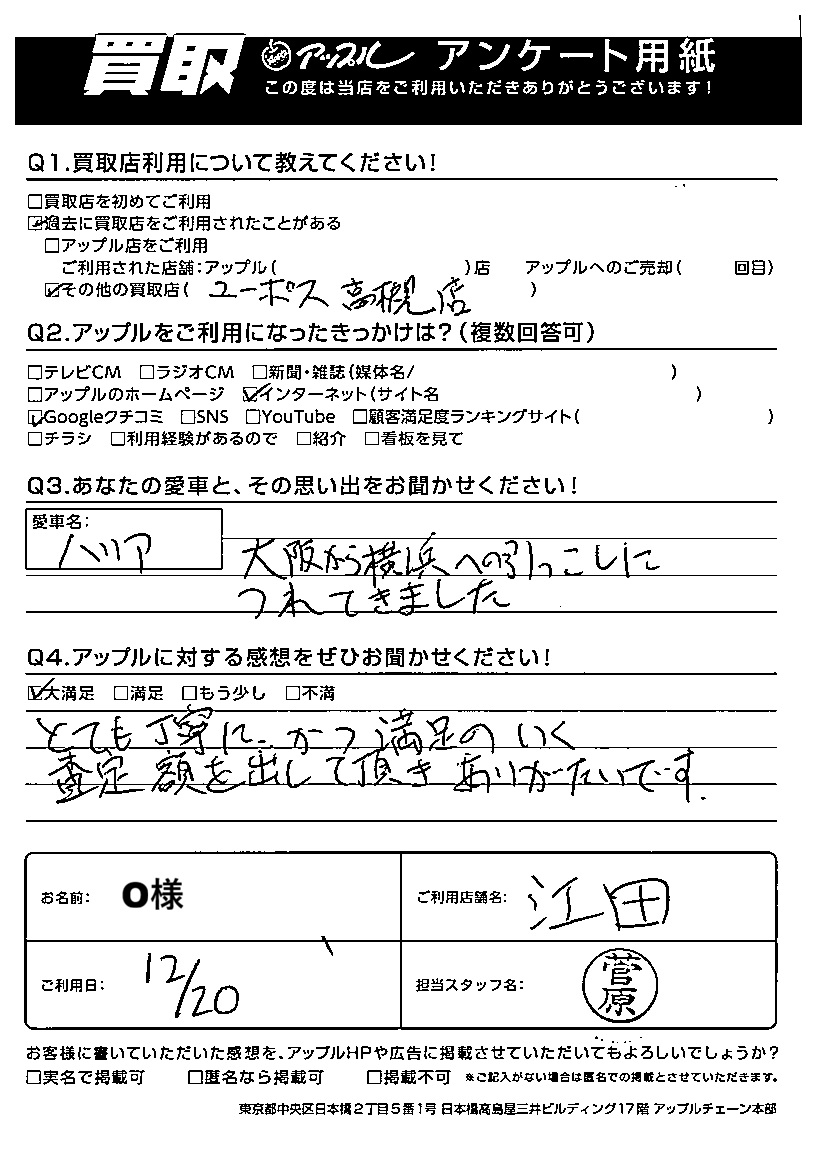 買取 アップル アンケート用紙
この度は当店をご利用いただきありがとうございます!
Q1.買取店利用について教えてください!
□買取店を初めてご利用
☑過去に買取店をご利用されたことがある
□アップル店をご利用
ご利用された店舗:アップル( )店 アップルへのご売却( 回目)
☑その他の買取店( ユーポス 高槻店 )
Q2.アップルをご利用になったきっかけは?(複数回答可)
□テレビCM □ラジオCM □新聞・雑誌(媒体名/ )
□アップルのホームページ ☑インターネット(サイト名 )
☑Googleクチコミ □SNS □YouTube □顧客満足度ランキングサイト( )
□チラシ □利用経験があるので □紹介 □看板を見て
Q3.あなたの愛車と、その思い出をお聞かせください!
愛車名:
ハリア
大阪から横浜への引っこしに
つれてきました
Q4.アップルに対する感想をぜひお聞かせください!
☑大満足 □満足 □もう少し □不満
とても丁寧に、かつ満足のいく
査定額を出して頂きありがたいです.
お名前: O様 ご利用店舗名: 江田
ご利用日: 12/20 担当スタッフ名: 菅原
お客様に書いていただいた感想を、アップルHPや広告に掲載させていただいてもよろしいでしょうか?
□実名で掲載可 □匿名なら掲載可 □掲載不可 ※ご記入がない場合は匿名での掲載とさせていただきます。
東京都中央区日本橋2丁目5番1号 日本橋髙島屋三井ビルディング17階 アップルチェーン本部